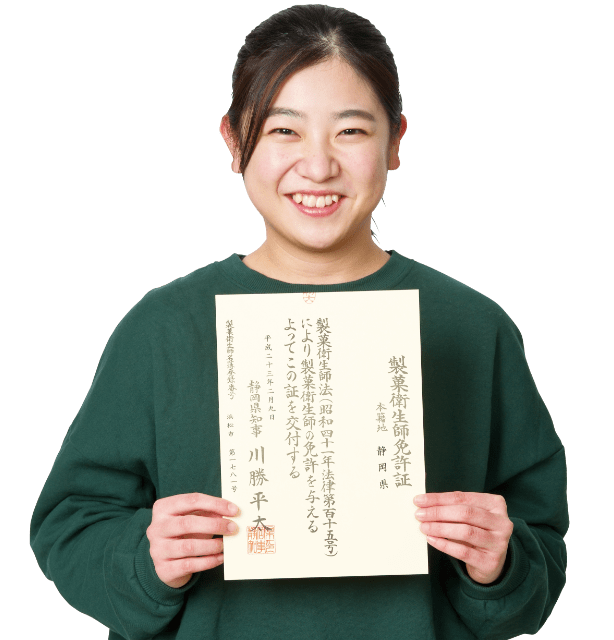 製菓衛生師免許証
本籍地 静岡県
製菓衛生師法(昭和四十一年法律第百十五号)
により製菓衛生師の免許を与える
よってこの証を交付する
平成二十三年二月九日
静岡県知事 川勝平太
製菓衛生師名簿登録番号 浜松市 第一七八一号